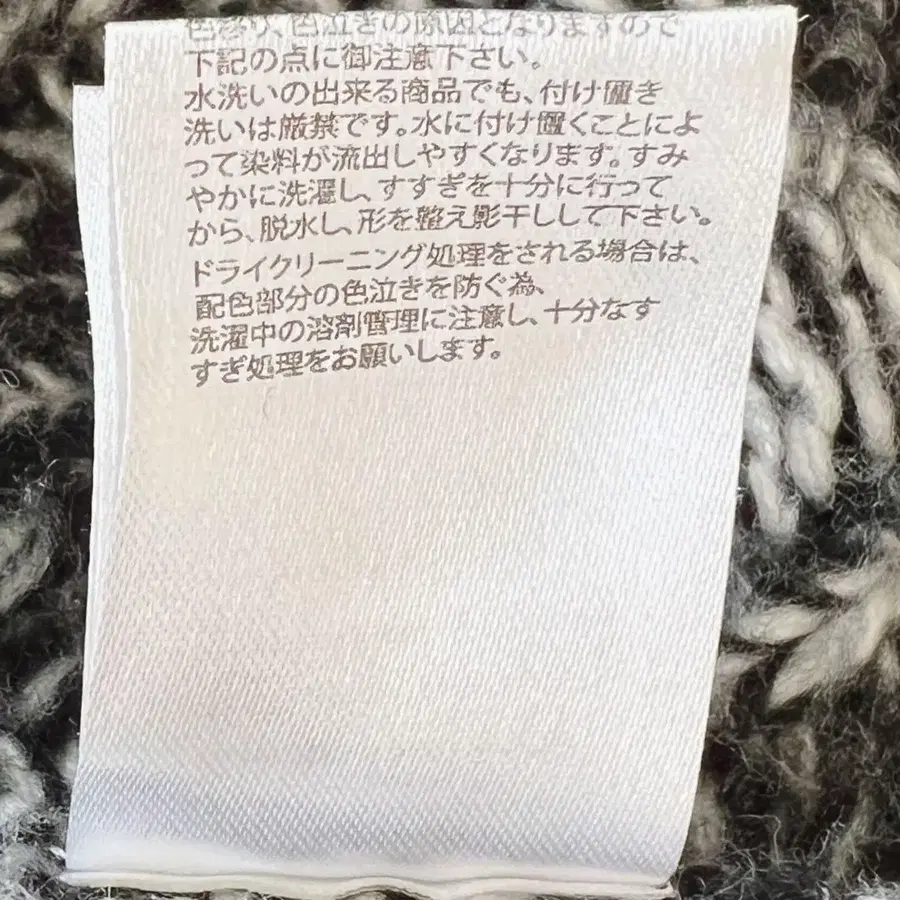 色移り、色泣きの原因となりますので
下記の点に御注意下さい。
水洗いの出来る商品でも、付け置き
洗いは厳禁です。水に付け置くことによ
って染料が流出しやすくなります。すみ
やかに洗濯し、すすぎを十分に行って
から、脱水し、形を整え影干しして下さい。
ドライクリーニング処理をされる場合は、
配色部分の色泣きを防ぐ為、
洗濯中の溶剤管理に注意し、十分なす
すぎ処理をお願いします。